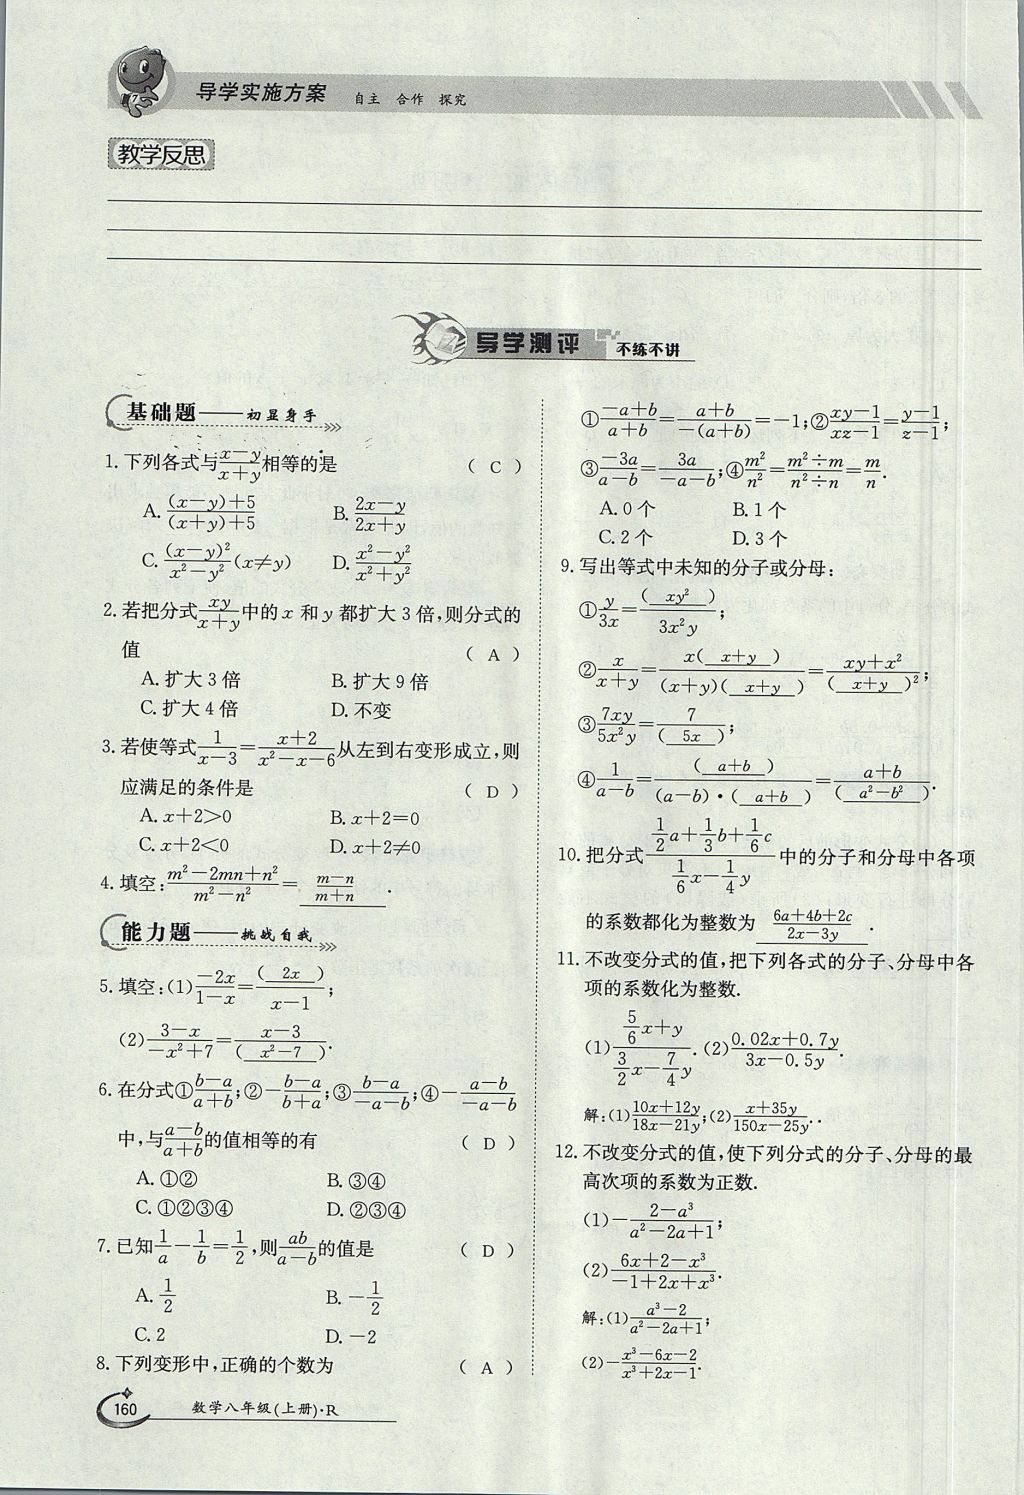 导学实施方案 自主 合作 探究
教学反思
导学测评 不练不讲
基础题——初显身手
1.下列各式与\frac{x-y}{x+y}相等的是 ( C )
A.\frac{(x-y)+5}{(x+y)+5} B.\frac{2x-y}{2x+y}
C.\frac{(x-y)^2}{x^2-y^2}(x≠y) D.\frac{x^2-y^2}{x^2+y^2}
2.若把分式\frac{xy}{x+y}中的x和y都扩大3倍,则分式的
值 ( A )
A.扩大3倍 B.扩大9倍
C.扩大4倍 D.不变
3.若使等式\frac{1}{x-3}=\frac{x+2}{x^2-x-6}从左到右变形成立,则
应满足的条件是 ( D )
A.x+2>0 B.x+2=0
C.x+2<0 D.x+2≠0
4.填空:\frac{m^2-2mn+n^2}{m^2-n^2}=\frac{m-n}{m+n}.
能力题——挑战自我
5.填空:(1)\frac{-2x}{1-x}=\frac{( 2x )}{x-1};
(2)\frac{3-x}{-x^2+7}=\frac{x-3}{( x^2-7 )}.
6.在分式①\frac{b-a}{a+b};②-\frac{b-a}{b+a};③\frac{b-a}{-a-b};④-\frac{a-b}{-a-b}
中,与\frac{a-b}{a+b}的值相等的有 ( D )
A.①② B.③④
C.①②③④ D.②③④
7.已知\frac{1}{a}-\frac{1}{b}=\frac{1}{2},则\frac{ab}{a-b}的值是 ( D )
A.\frac{1}{2} B.-\frac{1}{2}
C.2 D.-2
8.下列变形中,正确的个数为 ( A )
①\frac{-a+b}{a+b}=\frac{a+b}{-(a+b)}=-1;②\frac{xy-1}{xz-1}=\frac{y-1}{z-1};
③\frac{-3a}{a-b}=\frac{3a}{-a-b};④\frac{m^2}{n^2}=\frac{m^2÷m}{n^2÷n}=\frac{m}{n}.
A.0个 B.1个
C.2个 D.3个
9.写出等式中未知的分子或分母:
①\frac{y}{3x}=\frac{( xy^2 )}{3x^2y};
②\frac{x}{x+y}=\frac{x( x+y )}{(x+y)( x+y )}=\frac{xy+x^2}{( x+y )^2};
③\frac{7xy}{5x^2y}=\frac{7}{( 5x )};
④\frac{1}{a-b}=\frac{( a+b )}{(a-b)·( a+b )}=\frac{a+b}{( a^2-b^2 )}.
10.把分式\frac{\frac{1}{2}a+\frac{1}{3}b+\frac{1}{6}c}{\frac{1}{6}x-\frac{1}{4}y}中的分子和分母中各项
的系数都化为整数为\frac{6a+4b+2c}{2x-3y}.
11.不改变分式的值,把下列各式的分子、分母中各
项的系数化为整数.
(1)\frac{\frac{5}{6}x+y}{\frac{3}{2}x-\frac{7}{4}y}.(2)\frac{0.02x+0.7y}{3x-0.5y}.
解:(1)\frac{10x+12y}{18x-21y};(2)\frac{x+35y}{150x-25y}..
12.不改变分式的值,使下列分式的分子、分母的最
高次项的系数为正数.
(1)-\frac{2-a^3}{a^2-2a+1};
(2)\frac{6x+2-x^3}{-1+2x+x^3}.
解:(1)\frac{a^3-2}{a^2-2a+1};
(2)-\frac{x^3-6x-2}{x^3+2x-1}.
160 数学八年级(上册)·R